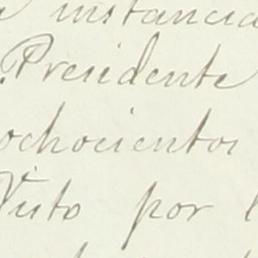 a instancia
Presidente
ochocientos
Visto por l